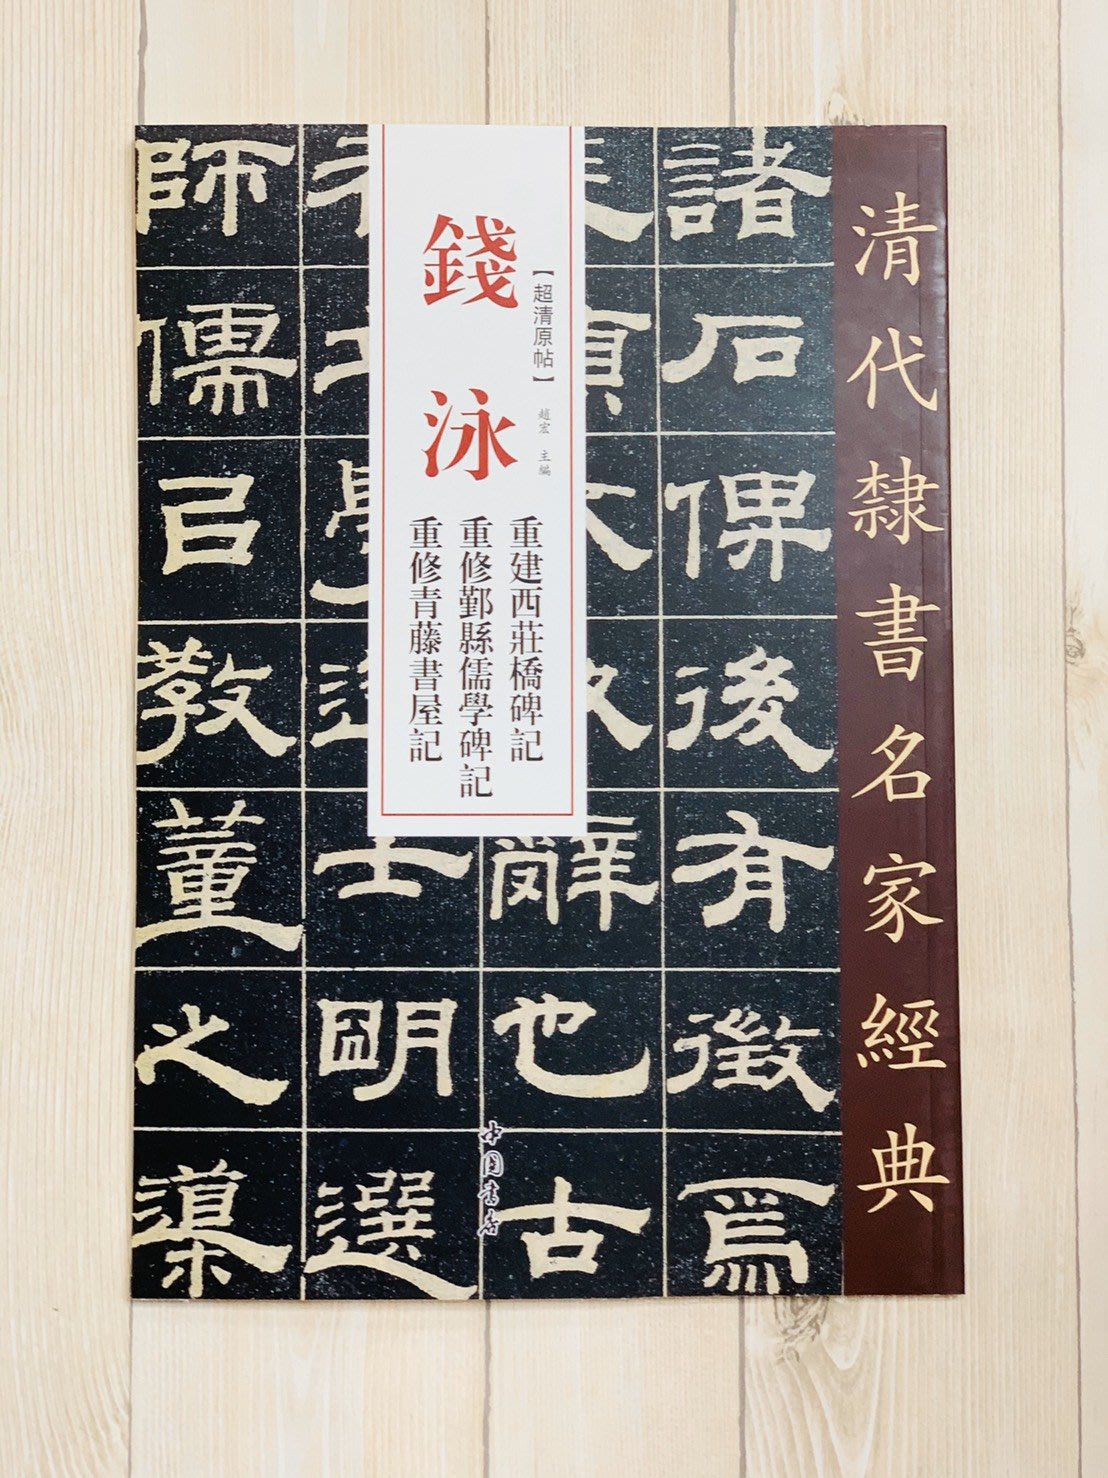 清代隸書名家經典
【超清原帖】
趙宏 主編
錢泳
重建西莊橋碑記
重修鄞縣儒學碑記
重修青藤書屋記
諸石俾後有徵爲
辭也古
士明選
師儒㠯教董之
中國書店